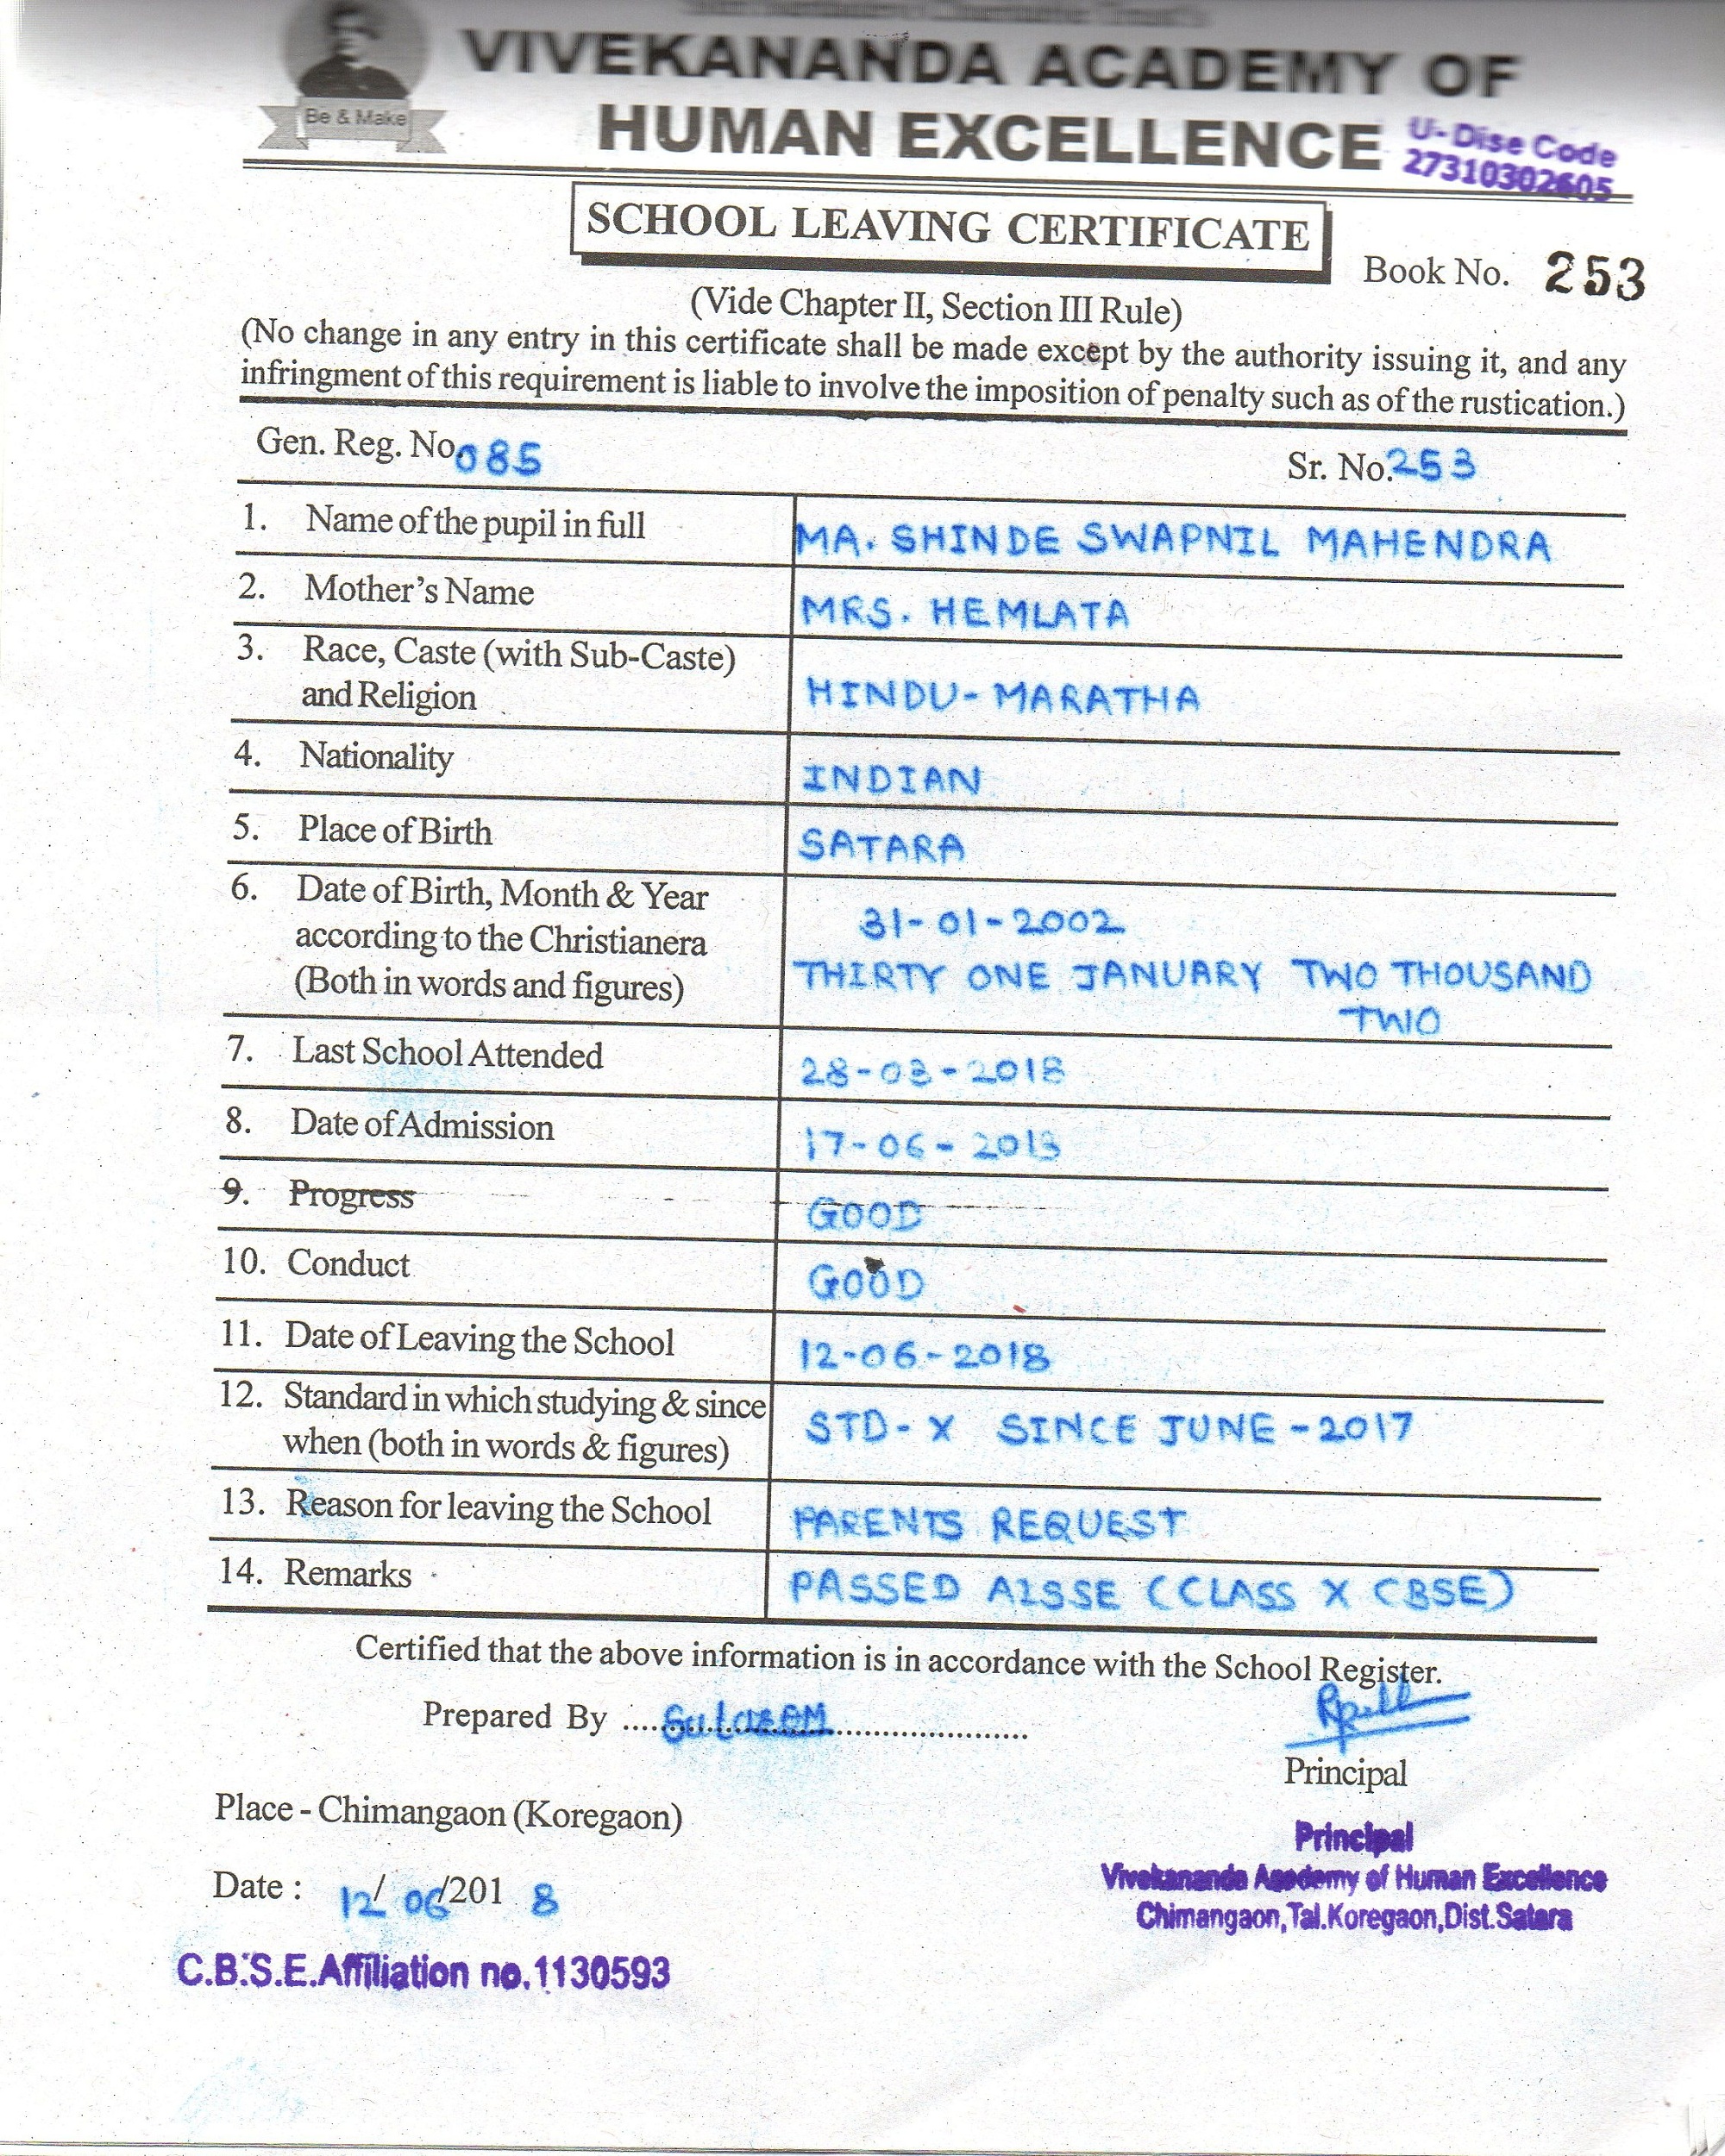 VIVEKANANDA ACADEMY OF
Be & Make
HUMAN EXCELLENCE
U-Dise Code
27310302605
SCHOOL LEAVING CERTIFICATE
Book No. 253
(Vide Chapter II, Section III Rule)
(No change in any entry in this certificate shall be made except by the authority issuing it, and any
infringment of this requirement is liable to involve the imposition of penalty such as of the rustication.)
Gen. Reg. No. 085 Sr. No. 253
1. Name of the pupil in full MA. SHINDE SWAPNIL MAHENDRA
2. Mother's Name MRS. HEMLATA
3. Race, Caste (with Sub-Caste)
and Religion HINDU-MARATHA
4. Nationality INDIAN
5. Place of Birth SATARA
6. Date of Birth, Month & Year
31-01-2002
according to the Christianera
(Both in words and figures) THIRTY ONE JANUARY TWO THOUSAND
TWO
7. Last School Attended 28-03-2018
8. Date of Admission 17-06-2013
9. Progress GOOD
10. Conduct GOOD
11. Date of Leaving the School 12-06-2018
12. Standard in which studying & since
when (both in words & figures) STD-X SINCE JUNE-2017
13. Reason for leaving the School PARENTS REQUEST
14. Remarks PASSED AISSE (CLASS X CBSE)
Certified that the above information is in accordance with the School Register.
Prepared By
Principal
Place - Chimangaon (Koregaon)
Principal
Vivekananda Acedemy of Human Excellence
Chimangaon,Tal.Koregaon,Dist.Satara
Date : 12/06/2018
C.B.S.E.Affiliation no.1130593